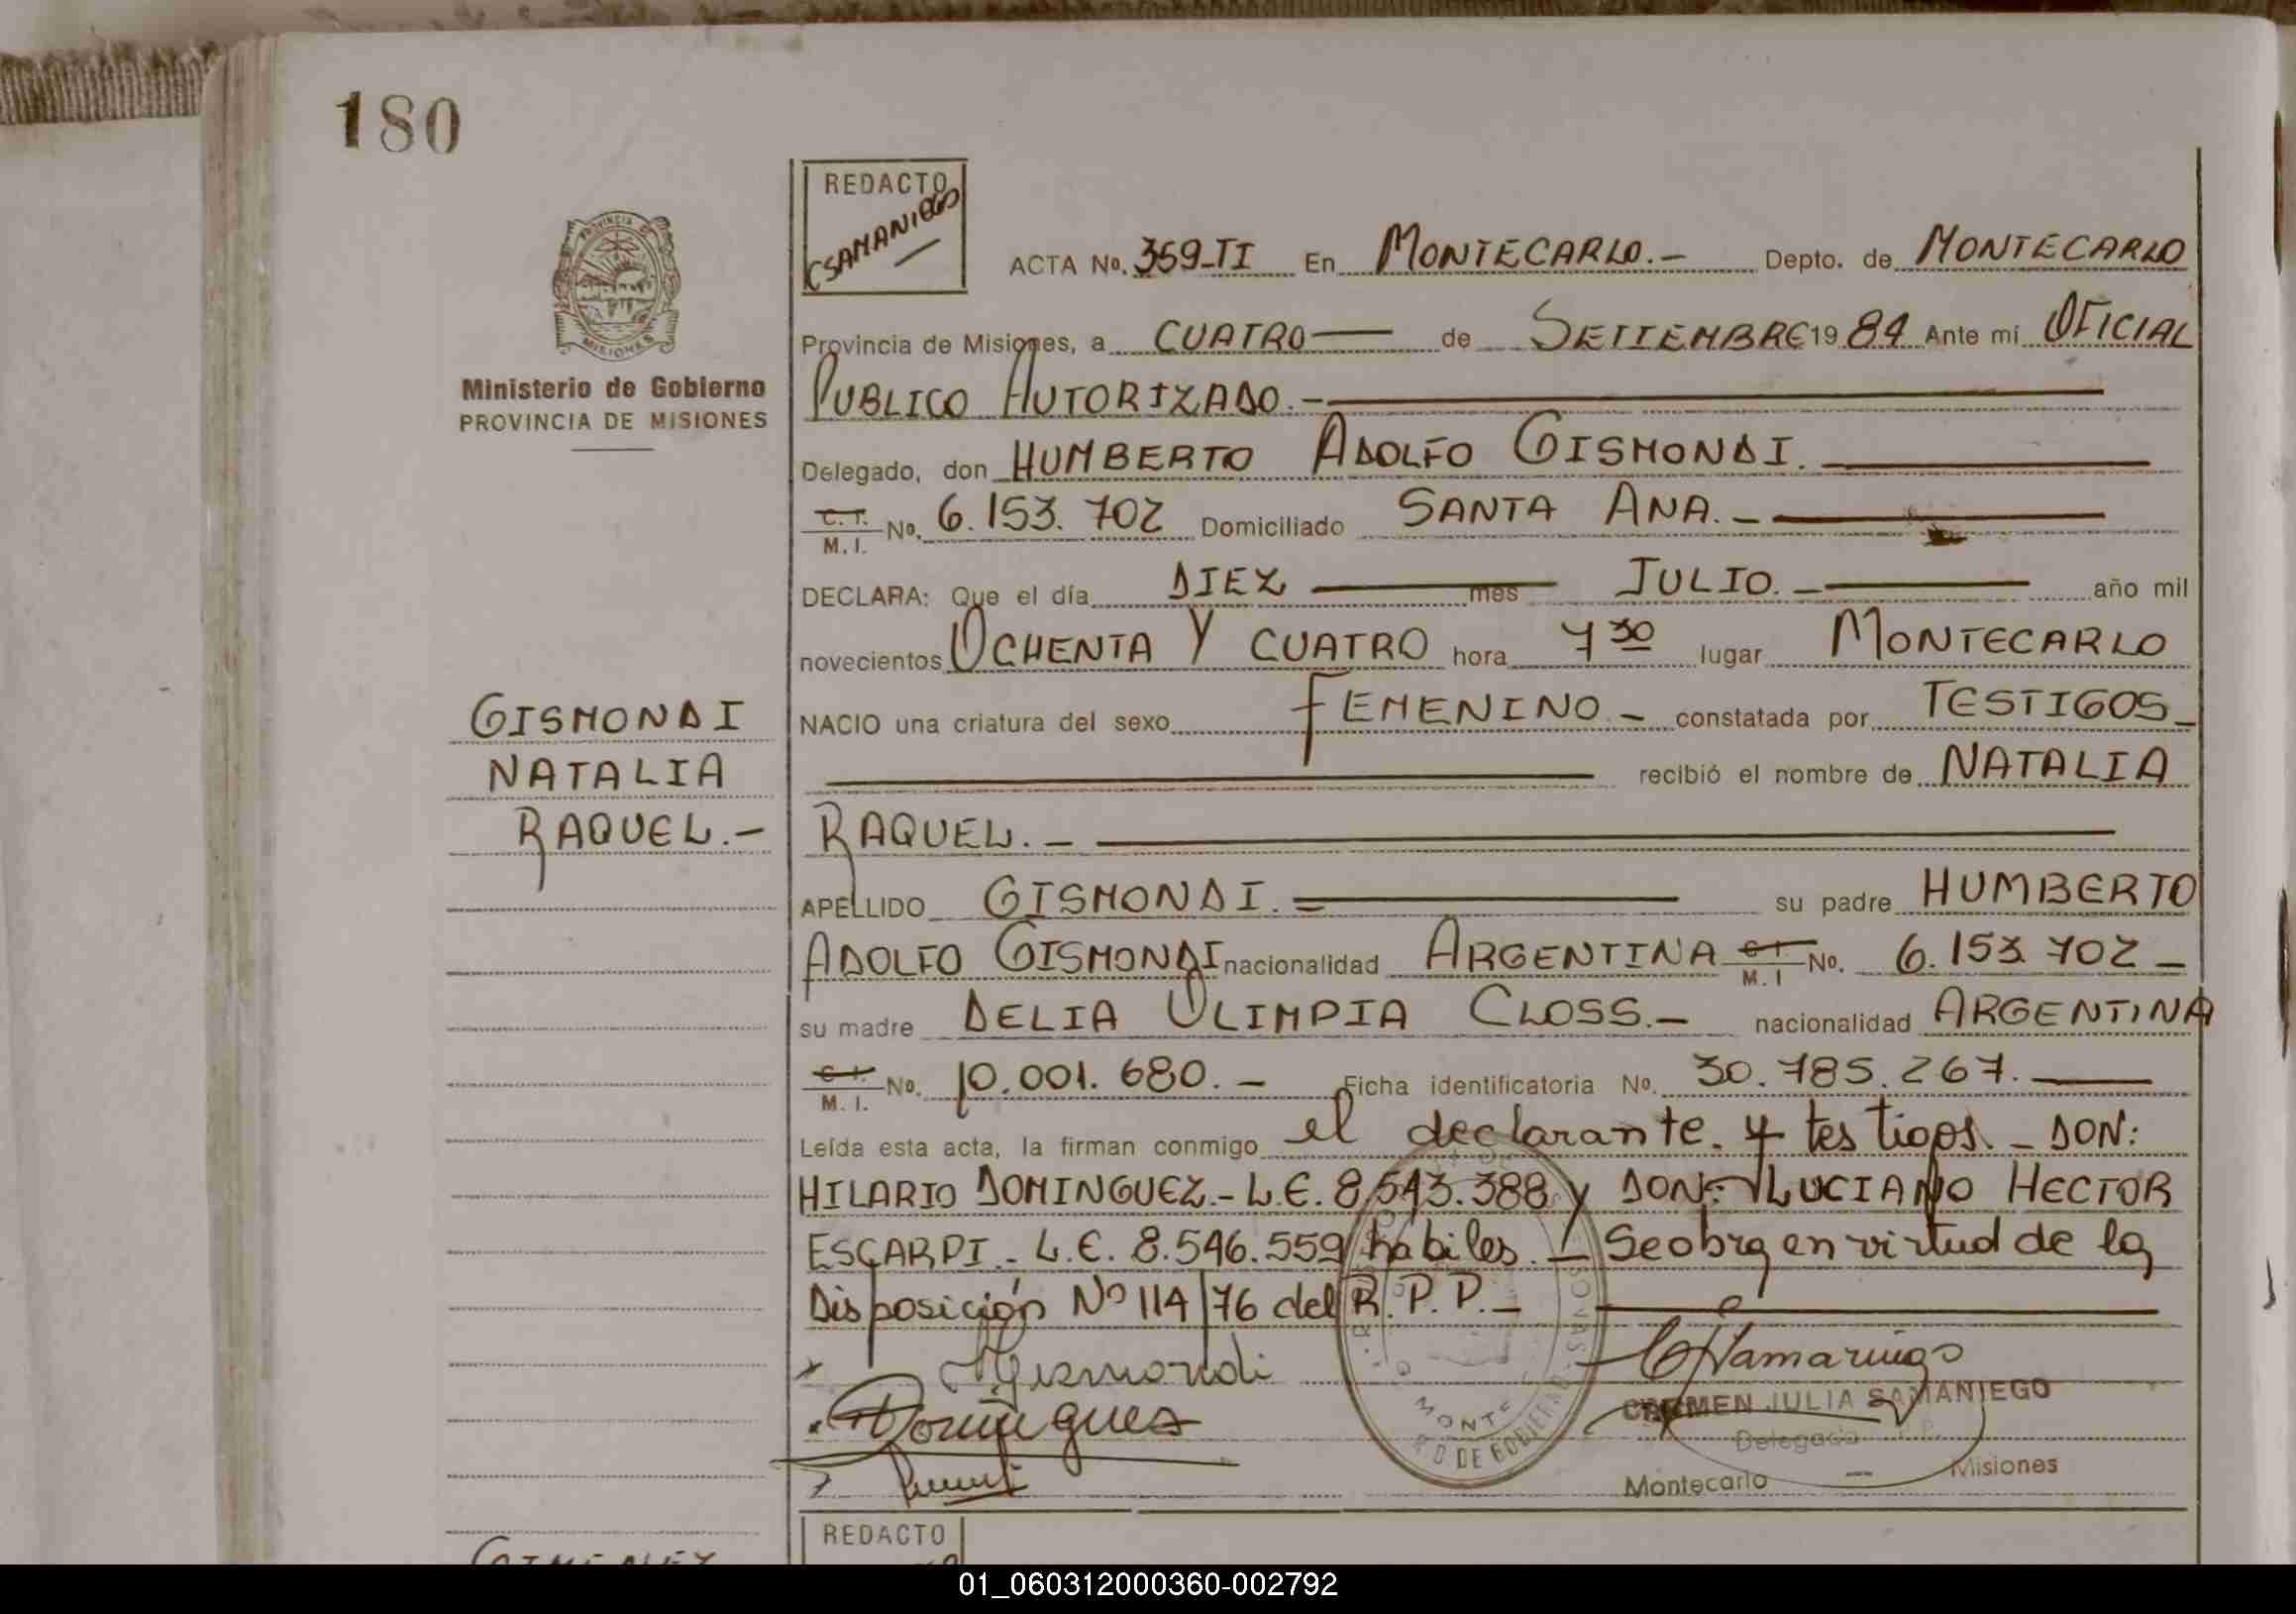 180
REDACTO
CSAMANIEGO
ACTA No. 359-TI En MONTECARLO.- Depto. de MONTECARLO
PROVINCIA DE
MISIONES
Provincia de Misiones, a CUATRO de SETIEMBRE 1984 Ante mí OFICIAL
Ministerio de Gobierno
PROVINCIA DE MISIONES
PUBLICO AUTORIZADO.-
Delegado, don HUMBERTO ADOLFO GISMONDI.
C. I. M. I. No. 6.153.702 Domiciliado SANTA ANA.-
DECLARA: Que el día DIEZ mes JULIO.- año mil
novecientos OCHENTA Y CUATRO hora 7 30 lugar MONTECARLO
GISMONDI
NATALIA
RAQUEL.-
NACIO una criatura del sexo FEMENINO.- constatada por TESTIGOS-
recibió el nombre de NATALIA
RAQUEL.-
APELLIDO GISMONDI.= su padre HUMBERTO
ADOLFO GISMONDI nacionalidad ARGENTINA C I M. I No. 6.153.702-
su madre DELIA OLIMPIA CLOSS.- nacionalidad ARGENTINA
C. I. M. I. No. 10.001.680.- Ficha identificatoria No. 30.785.267.
Leída esta acta, la firman conmigo el declarante. y testigos.- DON:
HILARIO DOMINGUEZ.- L.E. 8.543.388 y DON: LUCIANO HECTOR
ESCARPI.- L.E. 8.546.559 habiles.- Se obra en virtud de la
Disposición Nº 114/76 del R.P.P.-
Gismondi
CSamaniego
CARMEN JULIA SAMANIEGO
Dominguez
Delegada
Montecarlo - Misiones
MONTE
DE GOBIERNO
REDACTO
01_060312000360-002792